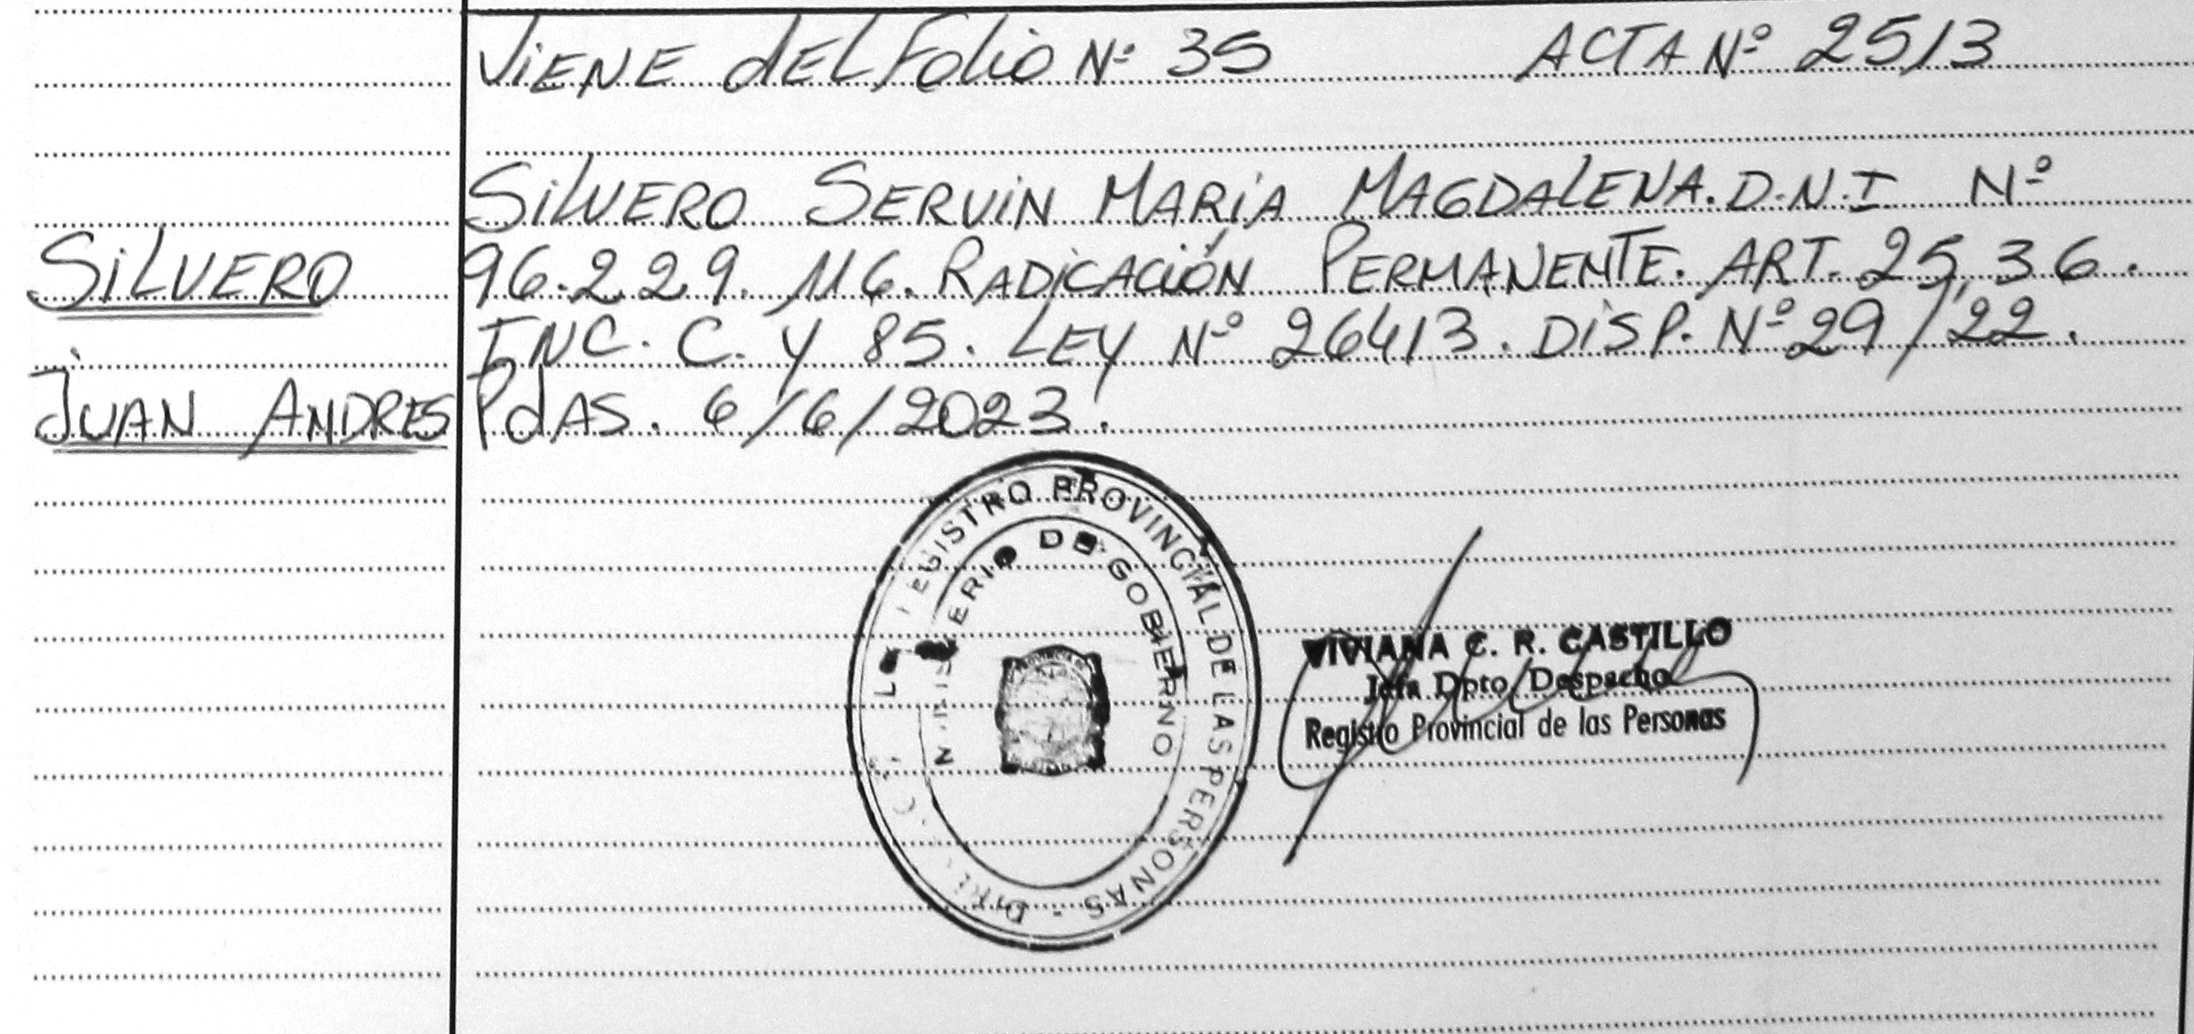 ViENE dEL Folio Nº 35 ACTA Nº 2513
SiLVERO SERVIN MARÍA MAGDALENA. D.N.I. Nº
96.229.116. RADICACIÓN PERMANENTE. ART. 25, 36.
INC. C. Y 85. LEY Nº 26413. DISP. Nº 29/22.
PdAS. 6/6/2023.
SiLVERO
JUAN ANDRES
REGISTRO PROVINCIAL DE LAS PERSONAS -
MINISTERIO DE GOBIERNO
VIVIANA C. R. CASTILLO
Jefa Dpto. Despacho
Registro Provincial de las Personas